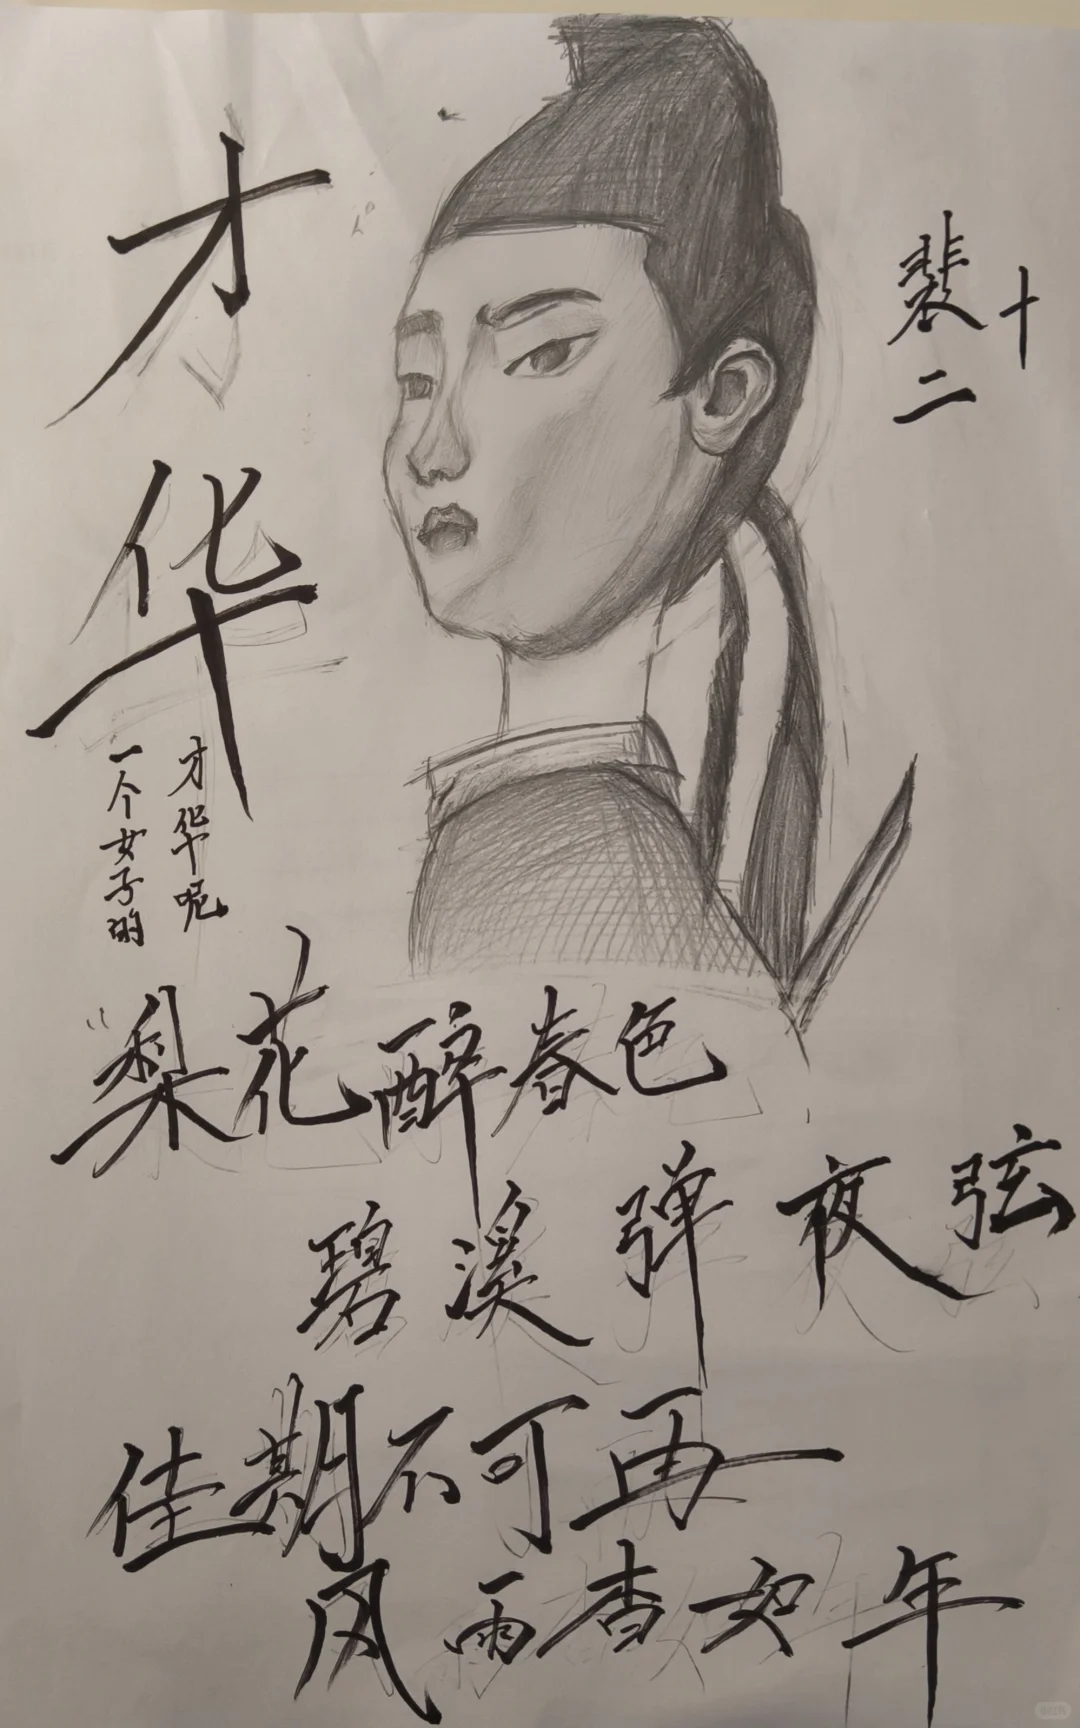 才华
一个女子的
才华呢
裴十
二
“梨花醉春色
碧溪弹夜弦
佳期不可再
风雨杳如年